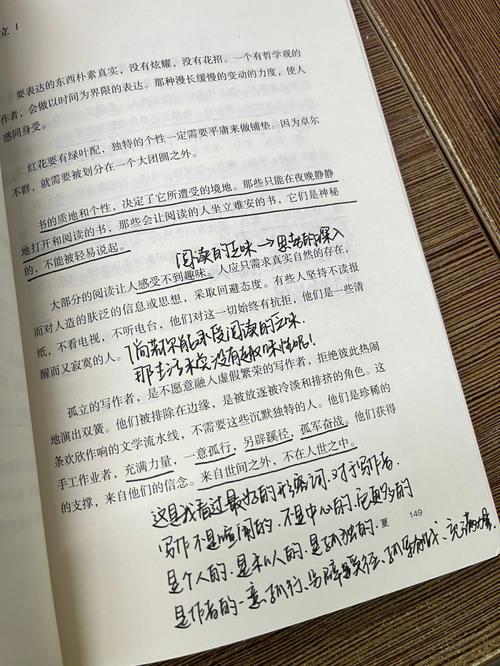 立 |
要表达的东西朴素真实，没有炫耀，没有花招。一个有哲学观的
作者，会做以时间为界限的表达。那种漫长缓慢的变动的力度，使人
感同身受。
红花要有绿叶配，独特的个性一定需要平庸来做铺垫。因为卓尔
不群，就需要被划分在一个大团圆之外。
书的质地和个性，决定了它所遭受的境地。那些只能在夜晚静静
地打开和阅读的书，那些会让阅读的人坐立难安的书，它们是神秘
的，不能被轻易说起。
阅读的趣味→思想的深入
大部分的阅读让人感受不到趣味。人应只需求真实自然的存在，
而对人造的肤泛的信息或思想，采取回避态度。有些人坚持不读报
纸，不看电视，不听电台，他们对这一切始终有抗拒，他们是一些清
醒而又寂寞的人。
阅读的趣味
那生活来说没有趣味性呢！
孤立的写作者，是不愿意融入虚假繁荣的写作者，拒绝彼此热闹
地演出双簧。他们被排除在边缘，是被放逐被冷淡和排挤的角色。这
条欢欣作响的文学流水线，不需要这些沉默独特的人。他们是珍稀的
手工作业者，充满力量，一意孤行，另辟蹊径，孤军奋战。他们获得
的支撑，来自他们的信念。来自世间之外，不在人世之中。
这是我看过最好的形容词，对于写作者。
写作不是喧闹的，不是中心的，它更多的
夏 149
是个人的，是私人的，是孤独的。
是作者的一意孤行、另辟蹊径、孤军奋战、充满力量